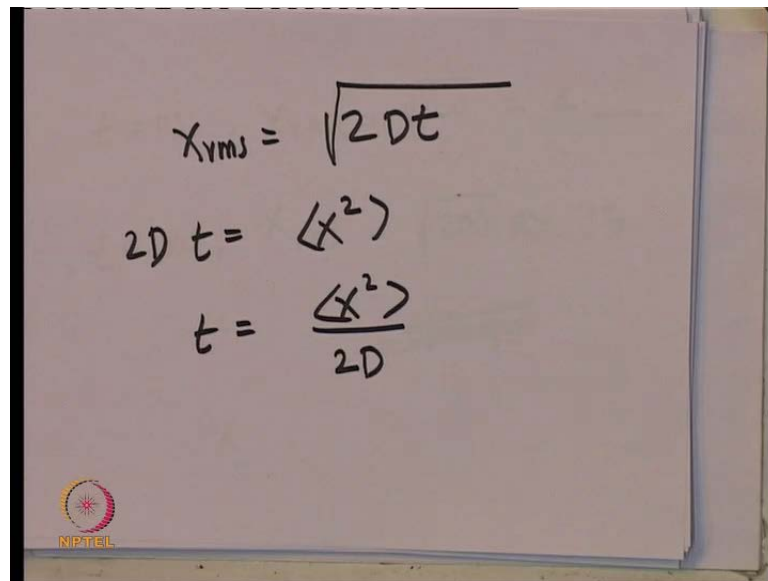 Xrms = √2Dt
2D t = ⟨x²⟩
t = ⟨x²⟩ / 2D
NPTEL